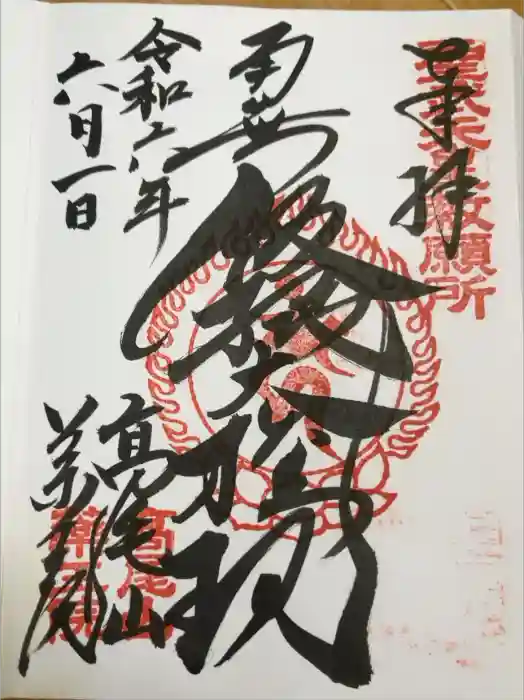 奉拝
聖武天皇勅願所
南無飯縄大権現
令和六年
六月一日
高尾山
薬王院
高尾山
薬王院